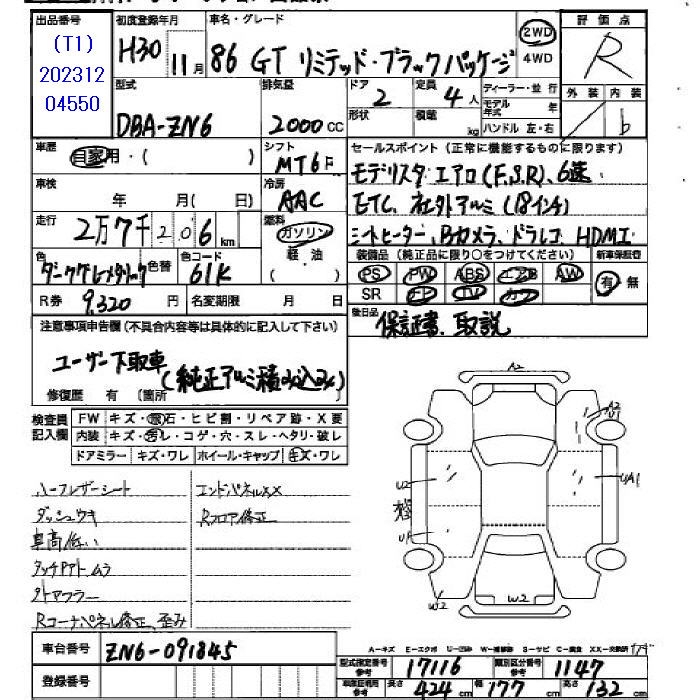 出品番号
初度登録年月
車名・グレード
評価点
(T1)
202312
04550
H30
11月
86 GT リミテッド・ブラックパッケージ
2WD
4WD
R
型式
DBA-ZN6
排気量
2000 CC
ドア
2
定員
4 人
形状
積載
kg
ディーラー・並行
モデル年式
年
ハンドル 左・右
外装
内装
b
車歴
自家用・( )
シフト
MT6F
セールスポイント (正常に機能するものに限ります)
モデリスタ エアロ(F,S,R)、6速
ETC、社外アルミ(18インチ)
シートヒーター、Bカメラ、ドラレコ HDMI
車検
年 月( 日)
冷房
AAC
走行
2万7千206 km
燃料
ガソリン
軽・油
( )
色
ダークグレーメタリック
色替
色コード
61K
装備品 (純正品に限り○をつけてください)
新車保証書
PS PW ABS エアB AW
SR ナビ TV カワ
有・無
R券
9,320 円
名変期限
月 日
後日品
保証書、取説
注意事項申告欄 (不具合内容等は具体的に記入して下さい)
ユーザー下取車
(純正アルミ積み込み)
修復歴 有 (箇所
検査員
記入欄
FW キズ・飛石・ヒビ割・リペア跡・X要
内装 キズ・汚レ・コゲ・穴・スレ・ヘタリ・破レ
ドアミラー キズ・ワレ ホイール・キャップ キズ・ワレ
ハーフレザーシート
エンドパネルXX
ダッシュウキ
Rフロア修正
車高低い
タッチPアトムラ
クトマフラー
Rコーナーパネル修正、歪み
A2
A2
U1
U2
UA1
U1
W2
W2
車台番号
ZN6-091845
登録番号
A-キズ E-エクボ U-凹み W-補修跡 S-サビ C-腐食 XX-交換済
型式指定番号
参考
17116
類別区分番号
参考
1147
車検証利用
参考
長さ
424 cm
幅
177 cm
高さ
132 cm